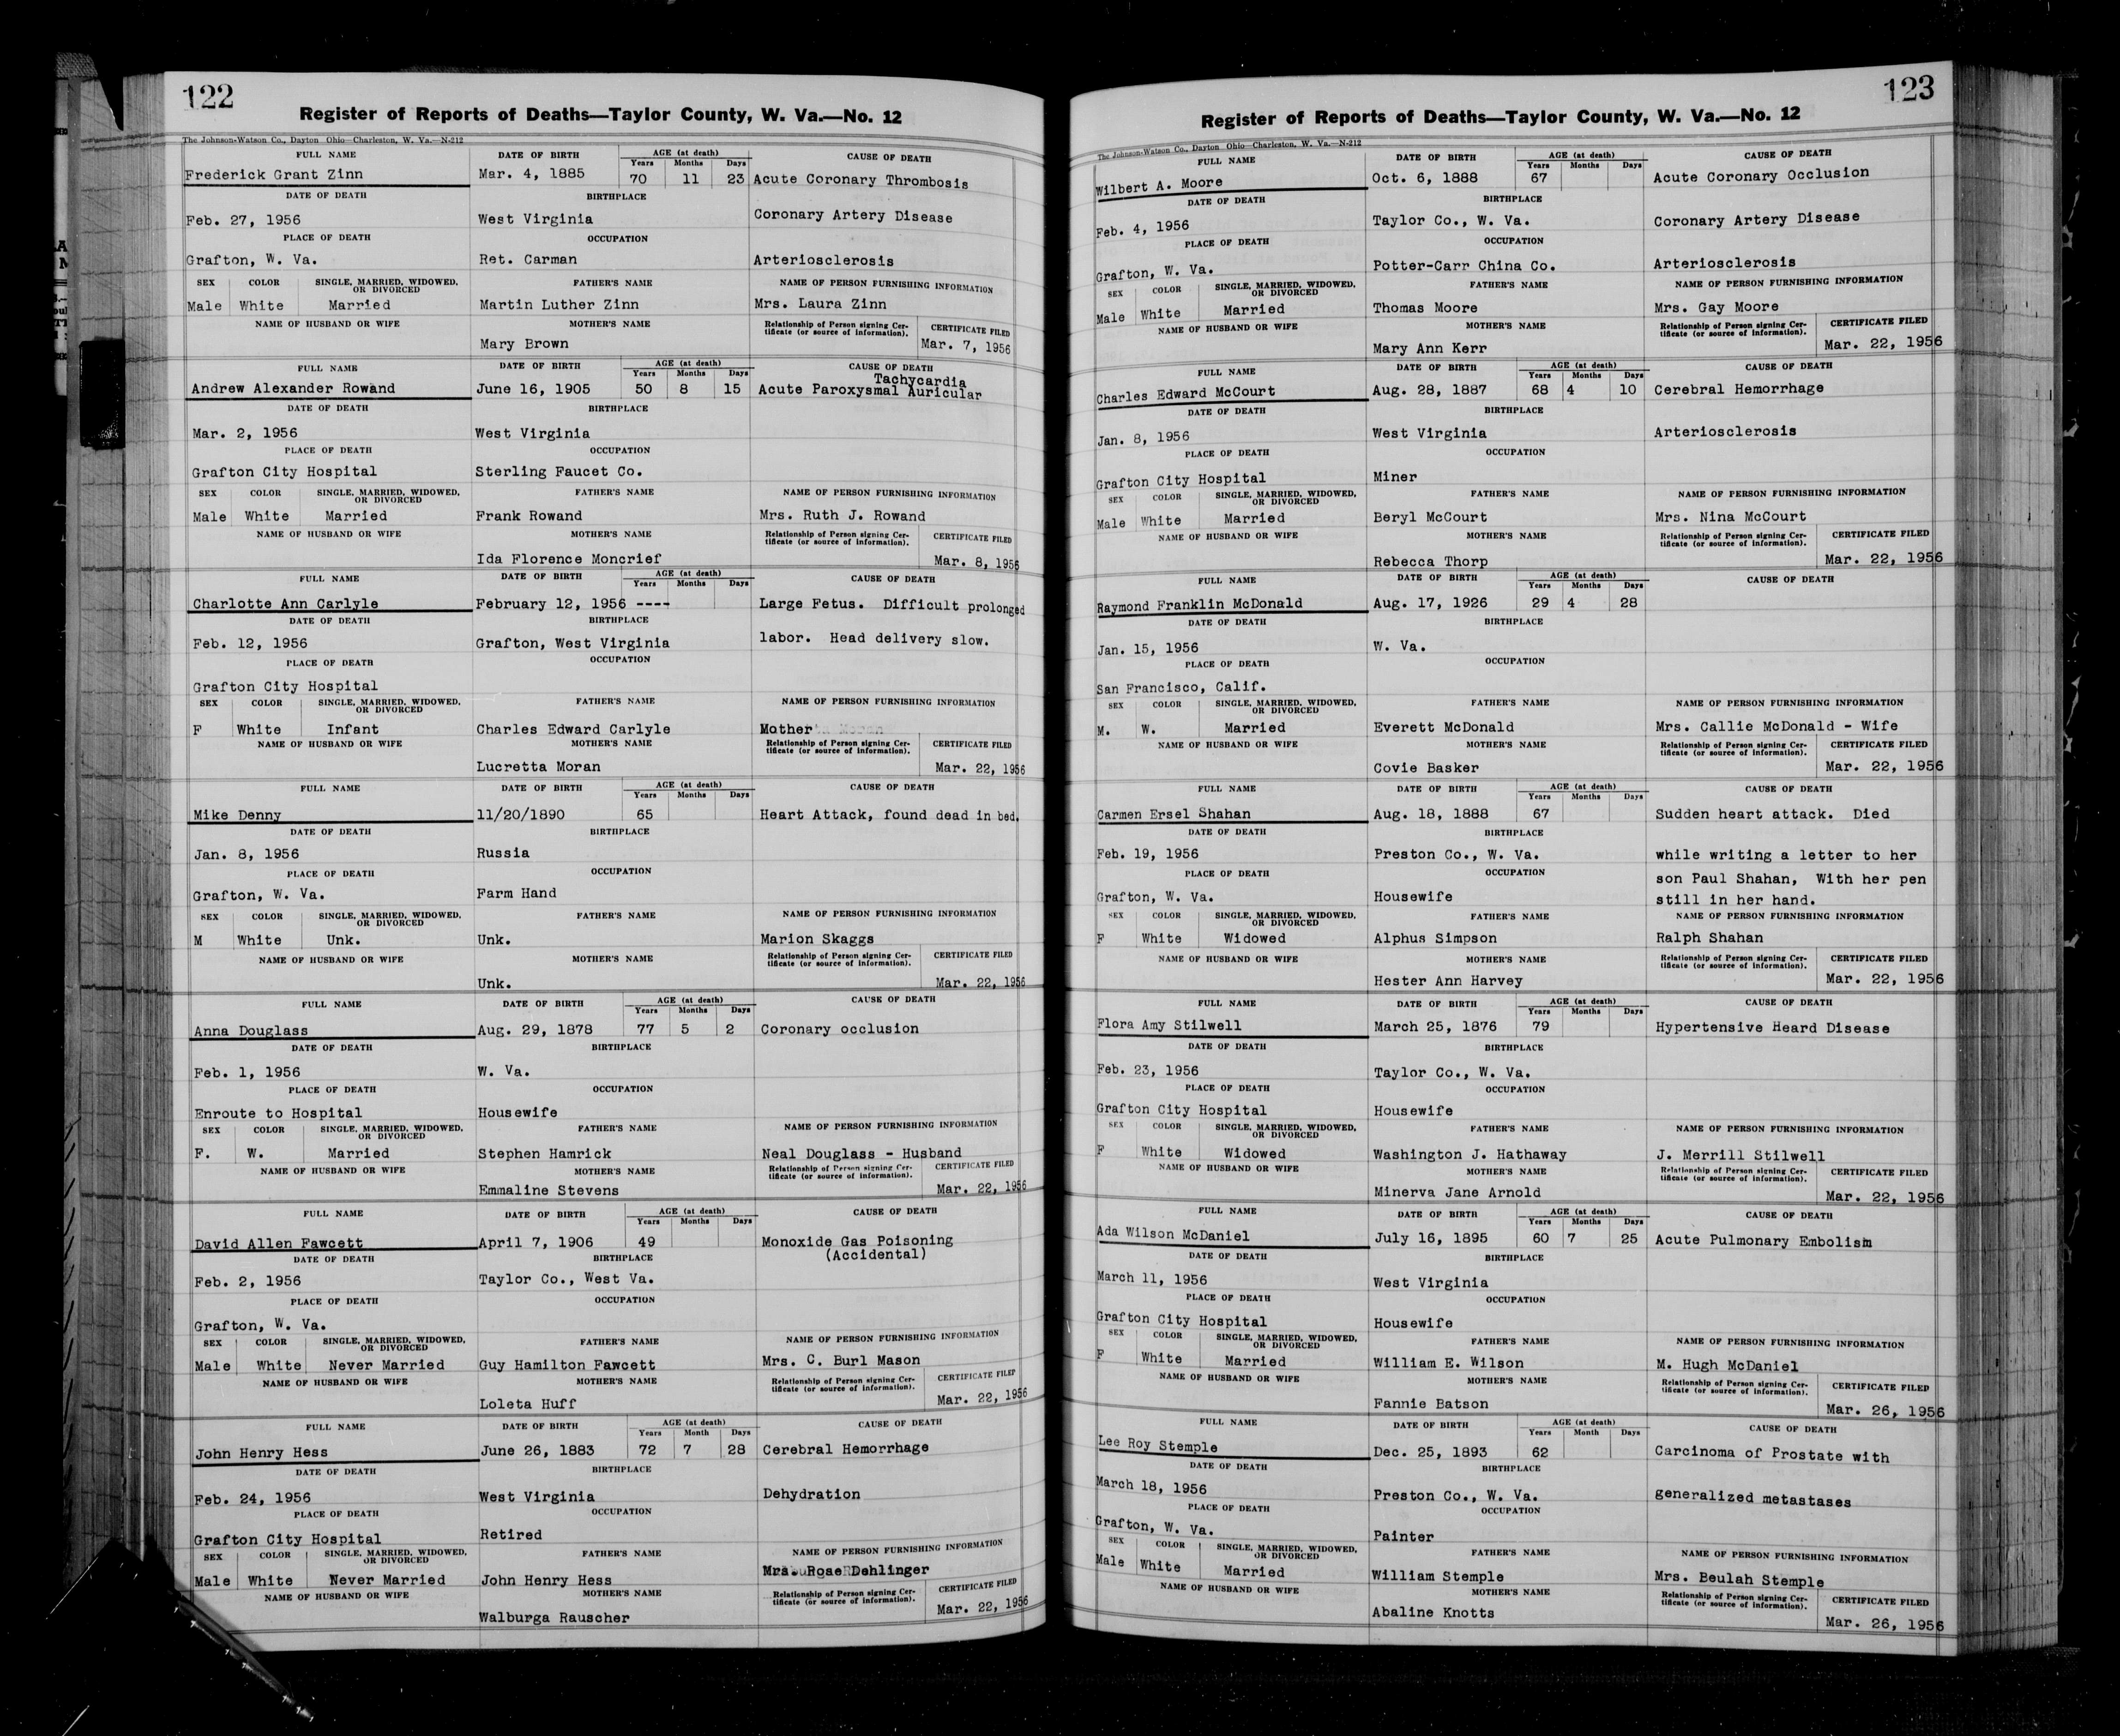 122
Register of Reports of Deaths—Taylor County, W. Va.—No. 12
The Johnson-Watson Co., Dayton Ohio—Charleston, W. Va.—N-212
FULL NAME DATE OF BIRTH AGE (at death) CAUSE OF DEATH
Years Months Days
Frederick Grant Zinn Mar. 4, 1885 70 11 23 Acute Coronary Thrombosis
DATE OF DEATH BIRTHPLACE
Feb. 27, 1956 West Virginia Coronary Artery Disease
PLACE OF DEATH OCCUPATION
Grafton, W. Va. Ret. Carman Arteriosclerosis
SEX COLOR SINGLE, MARRIED, WIDOWED, OR DIVORCED FATHER'S NAME NAME OF PERSON FURNISHING INFORMATION
Male White Married Martin Luther Zinn Mrs. Laura Zinn
NAME OF HUSBAND OR WIFE MOTHER'S NAME Relationship of Person signing Certificate (or source of information). CERTIFICATE FILED
Mary Brown Mar. 7, 1956
FULL NAME DATE OF BIRTH AGE (at death) CAUSE OF DEATH
Years Months Days Tachycardia
Andrew Alexander Rowand June 16, 1905 50 8 15 Acute Paroxysmal Auricular
DATE OF DEATH BIRTHPLACE
Mar. 2, 1956 West Virginia
PLACE OF DEATH OCCUPATION
Grafton City Hospital Sterling Faucet Co.
SEX COLOR SINGLE, MARRIED, WIDOWED, OR DIVORCED FATHER'S NAME NAME OF PERSON FURNISHING INFORMATION
Male White Married Frank Rowand Mrs. Ruth J. Rowand
NAME OF HUSBAND OR WIFE MOTHER'S NAME Relationship of Person signing Certificate (or source of information). CERTIFICATE FILED
Ida Florence Moncrief Mar. 8, 1956
FULL NAME DATE OF BIRTH AGE (at death) CAUSE OF DEATH
Years Months Days
Charlotte Ann Carlyle February 12, 1956 ---- Large Fetus. Difficult prolonged
DATE OF DEATH BIRTHPLACE
Feb. 12, 1956 Grafton, West Virginia labor. Head delivery slow.
PLACE OF DEATH OCCUPATION
Grafton City Hospital
SEX COLOR SINGLE, MARRIED, WIDOWED, OR DIVORCED FATHER'S NAME NAME OF PERSON FURNISHING INFORMATION
F White Infant Charles Edward Carlyle Mother
NAME OF HUSBAND OR WIFE MOTHER'S NAME Relationship of Person signing Certificate (or source of information). CERTIFICATE FILED
Lucretta Moran Mar. 22, 1956
FULL NAME DATE OF BIRTH AGE (at death) CAUSE OF DEATH
Years Months Days
Mike Denny 11/20/1890 65 Heart Attack, found dead in bed.
DATE OF DEATH BIRTHPLACE
Jan. 8, 1956 Russia
PLACE OF DEATH OCCUPATION
Grafton, W. Va. Farm Hand
SEX COLOR SINGLE, MARRIED, WIDOWED, OR DIVORCED FATHER'S NAME NAME OF PERSON FURNISHING INFORMATION
M White Unk. Unk. Marion Skaggs
NAME OF HUSBAND OR WIFE MOTHER'S NAME Relationship of Person signing Certificate (or source of information). CERTIFICATE FILED
Unk. Mar. 22, 1956
FULL NAME DATE OF BIRTH AGE (at death) CAUSE OF DEATH
Years Months Days
Anna Douglass Aug. 29, 1878 77 5 2 Coronary occlusion
DATE OF DEATH BIRTHPLACE
Feb. 1, 1956 W. Va.
PLACE OF DEATH OCCUPATION
Enroute to Hospital Housewife
SEX COLOR SINGLE, MARRIED, WIDOWED, OR DIVORCED FATHER'S NAME NAME OF PERSON FURNISHING INFORMATION
F. W. Married Stephen Hamrick Neal Douglass - Husband
NAME OF HUSBAND OR WIFE MOTHER'S NAME Relationship of Person signing Certificate (or source of information). CERTIFICATE FILED
Emmaline Stevens Mar. 22, 1956
FULL NAME DATE OF BIRTH AGE (at death) CAUSE OF DEATH
Years Months Days
David Allen Fawcett April 7, 1906 49 Monoxide Gas Poisoning
DATE OF DEATH BIRTHPLACE (Accidental)
Feb. 2, 1956 Taylor Co., West Va.
PLACE OF DEATH OCCUPATION
Grafton, W. Va.
SEX COLOR SINGLE, MARRIED, WIDOWED, OR DIVORCED FATHER'S NAME NAME OF PERSON FURNISHING INFORMATION
Male White Never Married Guy Hamilton Fawcett Mrs. C. Burl Mason
NAME OF HUSBAND OR WIFE MOTHER'S NAME Relationship of Person signing Certificate (or source of information). CERTIFICATE FILED
Loleta Huff Mar. 22, 1956
FULL NAME DATE OF BIRTH AGE (at death) CAUSE OF DEATH
Years Month Days
John Henry Hess June 26, 1883 72 7 28 Cerebral Hemorrhage
DATE OF DEATH BIRTHPLACE
Feb. 24, 1956 West Virginia Dehydration
PLACE OF DEATH OCCUPATION
Grafton City Hospital Retired
SEX COLOR SINGLE, MARRIED, WIDOWED, OR DIVORCED FATHER'S NAME NAME OF PERSON FURNISHING INFORMATION
Male White Never Married John Henry Hess Mrs. Rose Dehlinger
NAME OF HUSBAND OR WIFE MOTHER'S NAME Relationship of Person signing Certificate (or source of information). CERTIFICATE FILED
Walburga Rauscher Mar. 22, 1956
123
Register of Reports of Deaths—Taylor County, W. Va.—No. 12
The Johnson-Watson Co., Dayton Ohio—Charleston, W. Va.—N-212
FULL NAME DATE OF BIRTH AGE (at death) CAUSE OF DEATH
Years Months Days
Wilbert A. Moore Oct. 6, 1888 67 Acute Coronary Occlusion
DATE OF DEATH BIRTHPLACE
Feb. 4, 1956 Taylor Co., W. Va. Coronary Artery Disease
PLACE OF DEATH OCCUPATION
Grafton, W. Va. Potter-Carr China Co. Arteriosclerosis
SEX COLOR SINGLE, MARRIED, WIDOWED, OR DIVORCED FATHER'S NAME NAME OF PERSON FURNISHING INFORMATION
Male White Married Thomas Moore Mrs. Gay Moore
NAME OF HUSBAND OR WIFE MOTHER'S NAME Relationship of Person signing Certificate (or source of information). CERTIFICATE FILED
Mary Ann Kerr Mar. 22, 1956
FULL NAME DATE OF BIRTH AGE (at death) CAUSE OF DEATH
Years Months Days
Charles Edward McCourt Aug. 28, 1887 68 4 10 Cerebral Hemorrhage
DATE OF DEATH BIRTHPLACE
Jan. 8, 1956 West Virginia Arteriosclerosis
PLACE OF DEATH OCCUPATION
Grafton City Hospital Miner
SEX COLOR SINGLE, MARRIED, WIDOWED, OR DIVORCED FATHER'S NAME NAME OF PERSON FURNISHING INFORMATION
Male White Married Beryl McCourt Mrs. Nina McCourt
NAME OF HUSBAND OR WIFE MOTHER'S NAME Relationship of Person signing Certificate (or source of information). CERTIFICATE FILED
Rebecca Thorp Mar. 22, 1956
FULL NAME DATE OF BIRTH AGE (at death) CAUSE OF DEATH
Years Months Days
Raymond Franklin McDonald Aug. 17, 1926 29 4 28
DATE OF DEATH BIRTHPLACE
Jan. 15, 1956 W. Va.
PLACE OF DEATH OCCUPATION
San Francisco, Calif.
SEX COLOR SINGLE, MARRIED, WIDOWED, OR DIVORCED FATHER'S NAME NAME OF PERSON FURNISHING INFORMATION
M. W. Married Everett McDonald Mrs. Callie McDonald - Wife
NAME OF HUSBAND OR WIFE MOTHER'S NAME Relationship of Person signing Certificate (or source of information). CERTIFICATE FILED
Covie Basker Mar. 22, 1956
FULL NAME DATE OF BIRTH AGE (at death) CAUSE OF DEATH
Years Months Days
Carmen Ersel Shahan Aug. 18, 1888 67 Sudden heart attack. Died
DATE OF DEATH BIRTHPLACE
Feb. 19, 1956 Preston Co., W. Va. while writing a letter to her
PLACE OF DEATH OCCUPATION son Paul Shahan, With her pen
Grafton, W. Va. Housewife still in her hand.
SEX COLOR SINGLE, MARRIED, WIDOWED, OR DIVORCED FATHER'S NAME NAME OF PERSON FURNISHING INFORMATION
F White Widowed Alphus Simpson Ralph Shahan
NAME OF HUSBAND OR WIFE MOTHER'S NAME Relationship of Person signing Certificate (or source of information). CERTIFICATE FILED
Hester Ann Harvey Mar. 22, 1956
FULL NAME DATE OF BIRTH AGE (at death) CAUSE OF DEATH
Years Months Days
Flora Amy Stilwell March 25, 1876 79 Hypertensive Heard Disease
DATE OF DEATH BIRTHPLACE
Feb. 23, 1956 Taylor Co., W. Va.
PLACE OF DEATH OCCUPATION
Grafton City Hospital Housewife
SEX COLOR SINGLE, MARRIED, WIDOWED, OR DIVORCED FATHER'S NAME NAME OF PERSON FURNISHING INFORMATION
F White Widowed Washington J. Hathaway J. Merrill Stilwell
NAME OF HUSBAND OR WIFE MOTHER'S NAME Relationship of Person signing Certificate (or source of information). CERTIFICATE FILED
Minerva Jane Arnold Mar. 22, 1956
FULL NAME DATE OF BIRTH AGE (at death) CAUSE OF DEATH
Years Months Days
Ada Wilson McDaniel July 16, 1895 60 7 25 Acute Pulmonary Embolism
DATE OF DEATH BIRTHPLACE
March 11, 1956 West Virginia
PLACE OF DEATH OCCUPATION
Grafton City Hospital Housewife
SEX COLOR SINGLE, MARRIED, WIDOWED, OR DIVORCED FATHER'S NAME NAME OF PERSON FURNISHING INFORMATION
F White Married William E. Wilson M. Hugh McDaniel
NAME OF HUSBAND OR WIFE MOTHER'S NAME Relationship of Person signing Certificate (or source of information). CERTIFICATE FILED
Fannie Batson Mar. 26, 1956
FULL NAME DATE OF BIRTH AGE (at death) CAUSE OF DEATH
Years Month Days
Lee Roy Stemple Dec. 25, 1893 62 Carcinoma of Prostate with
DATE OF DEATH BIRTHPLACE
March 18, 1956 Preston Co., W. Va. generalized metastases
PLACE OF DEATH OCCUPATION
Grafton, W. Va. Painter
SEX COLOR SINGLE, MARRIED, WIDOWED, OR DIVORCED FATHER'S NAME NAME OF PERSON FURNISHING INFORMATION
Male White Married William Stemple Mrs. Beulah Stemple
NAME OF HUSBAND OR WIFE MOTHER'S NAME Relationship of Person signing Certificate (or source of information). CERTIFICATE FILED
Abaline Knotts Mar. 26, 1956